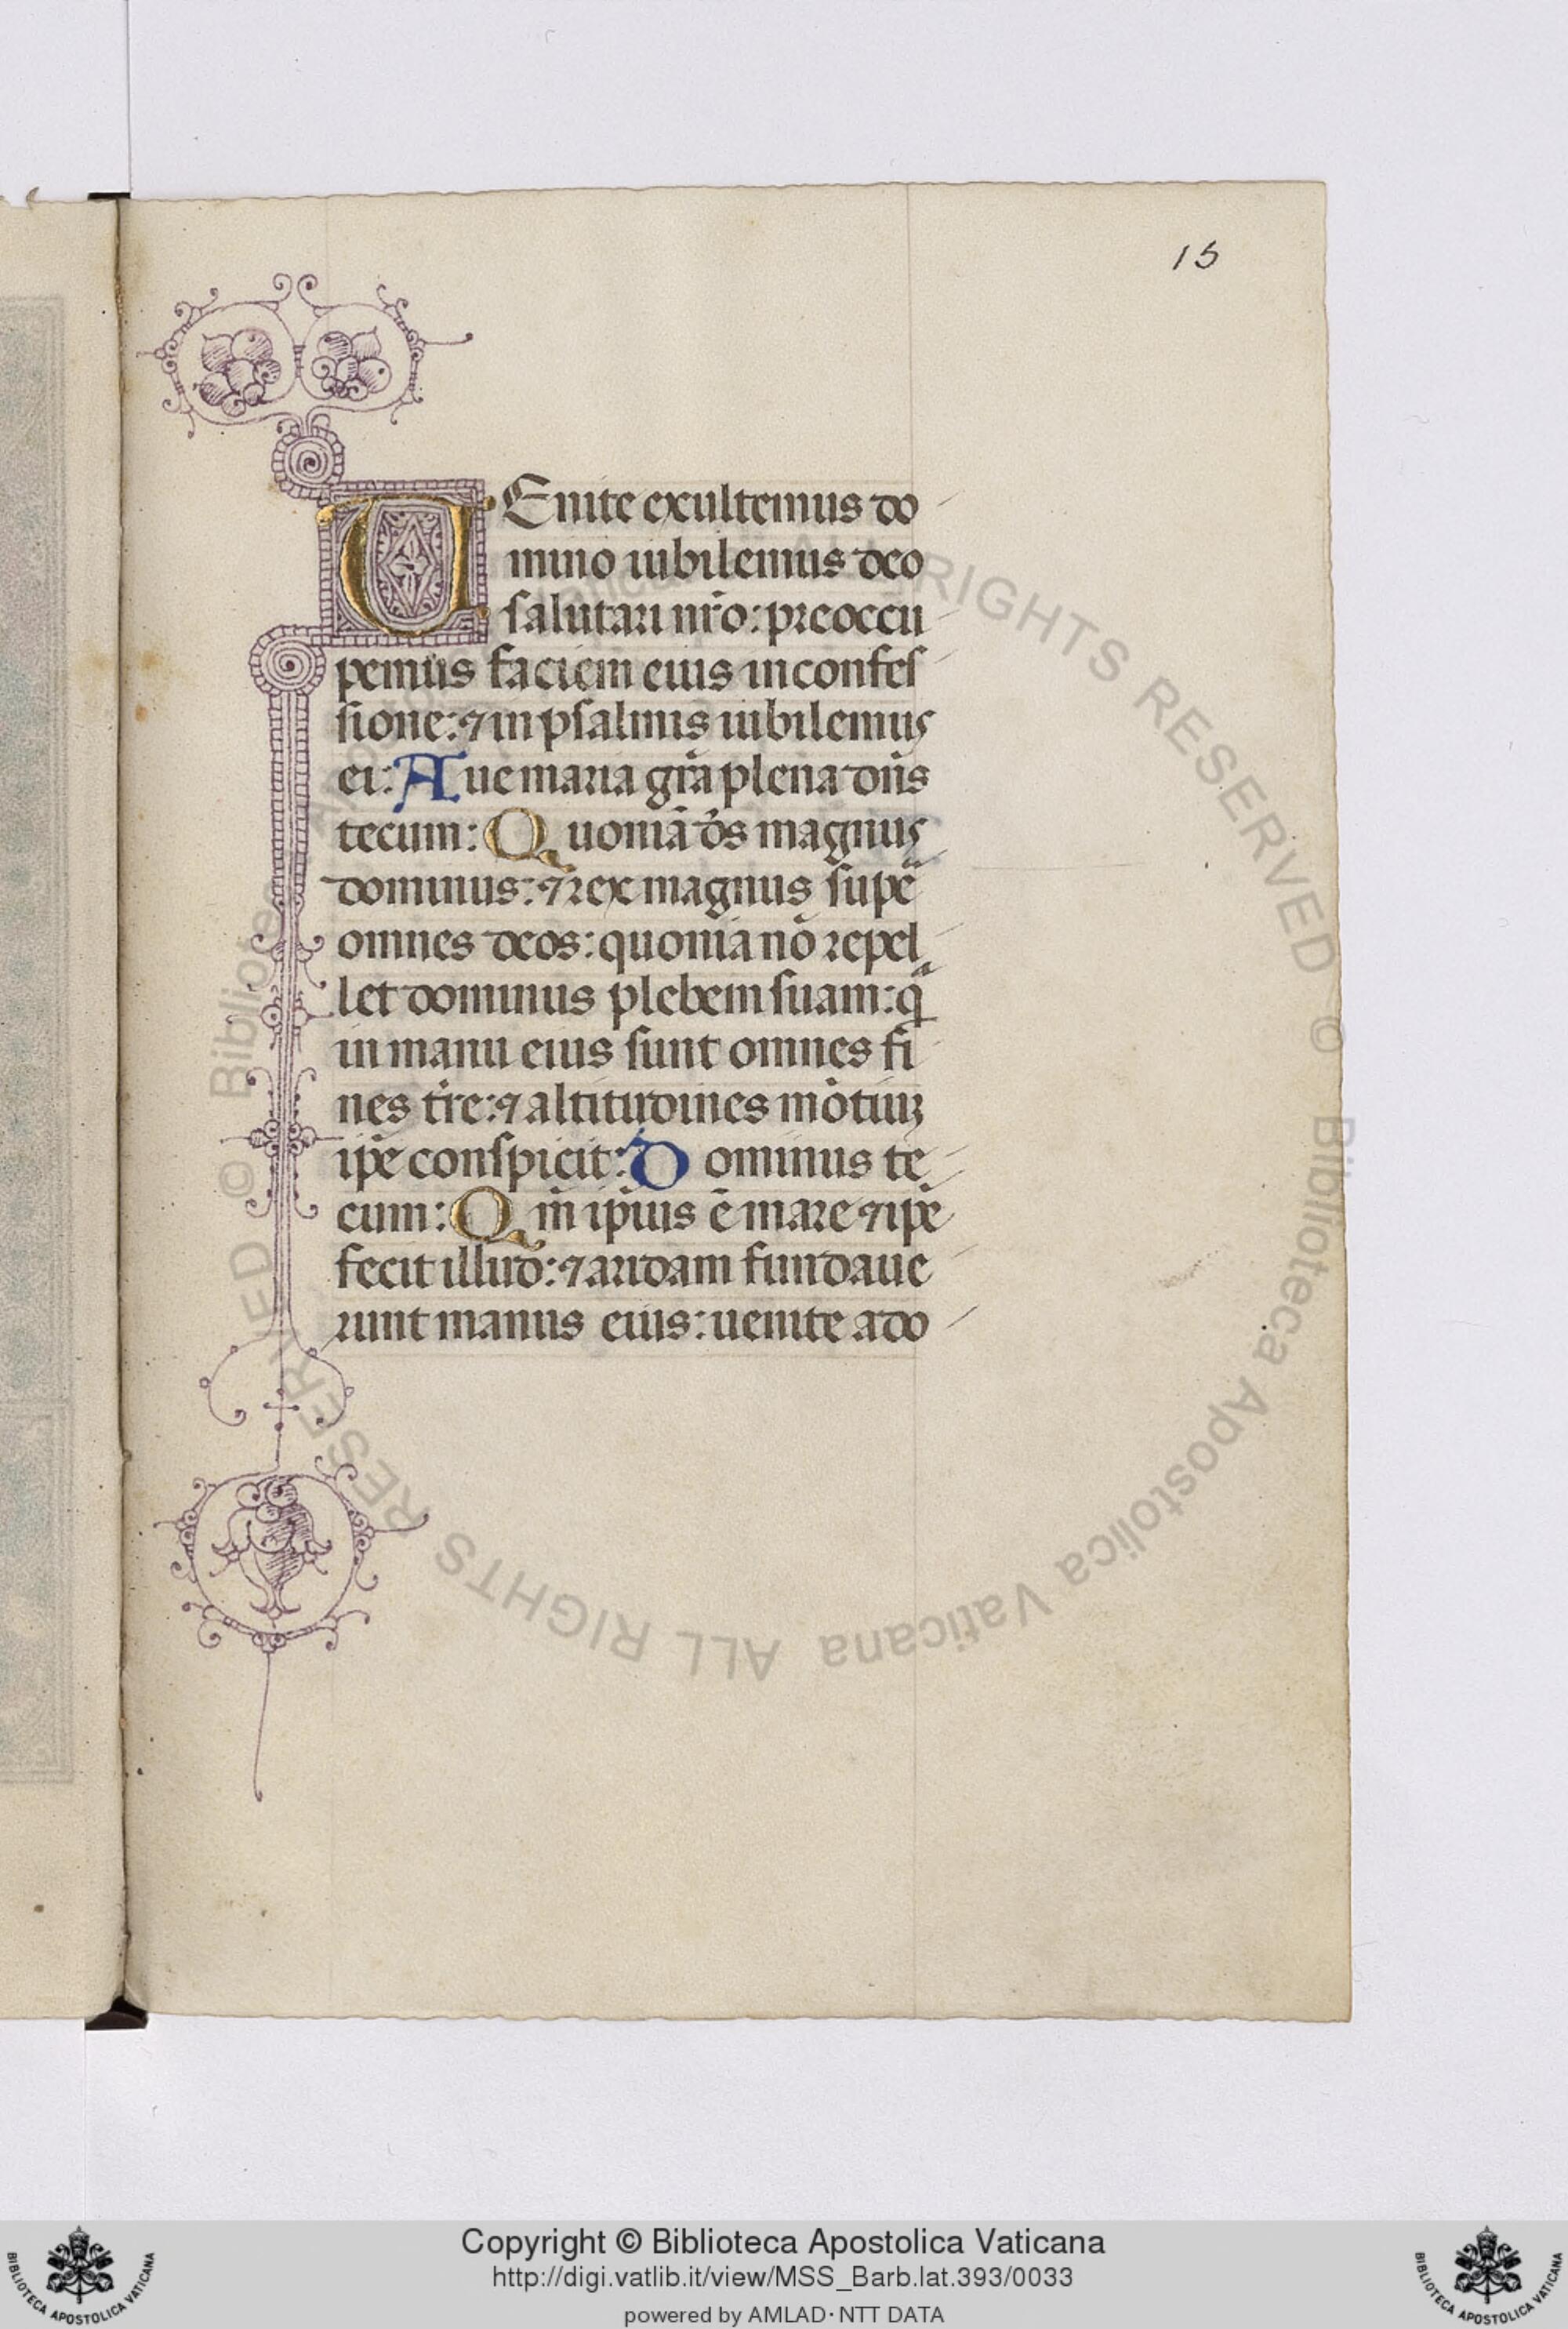 15
UEnite exultemus do
mino iubilemus deo
salutari nr̄o: preoccu
pemus faciem eius in confes
sione: ⁊ in psalmis iubilemus
ei: Aue maria gr̄a plena dn̄s
tecum: Quoniā ds̄ magnus
dominus: ⁊ rex magnus supē
omnes deos: quoniā nō repel
let dominus plebem suam: qͣ
in manu eius sunt omnes fi
nes tr̄e: ⁊ altitudines mōtiuꝫ
ip̄e conspicit: Dominus te
cum: Qm̄ ip̄ius ē mare ⁊ ip̄e
fecit illud: ⁊ aridam fundaue
runt manus eius: uenite ado
© Biblioteca Apostolica Vaticana ALL RIGHTS RESERVED © Biblioteca Apostolica Vaticana ALL RIGHTS RESERVED
Copyright © Biblioteca Apostolica Vaticana
http://digi.vatlib.it/view/MSS_Barb.lat.393/0033
powered by AMLAD·NTT DATA
BIBLIOTECA APOSTOLICA VATICANA
BIBLIOTECA APOSTOLICA VATICANA